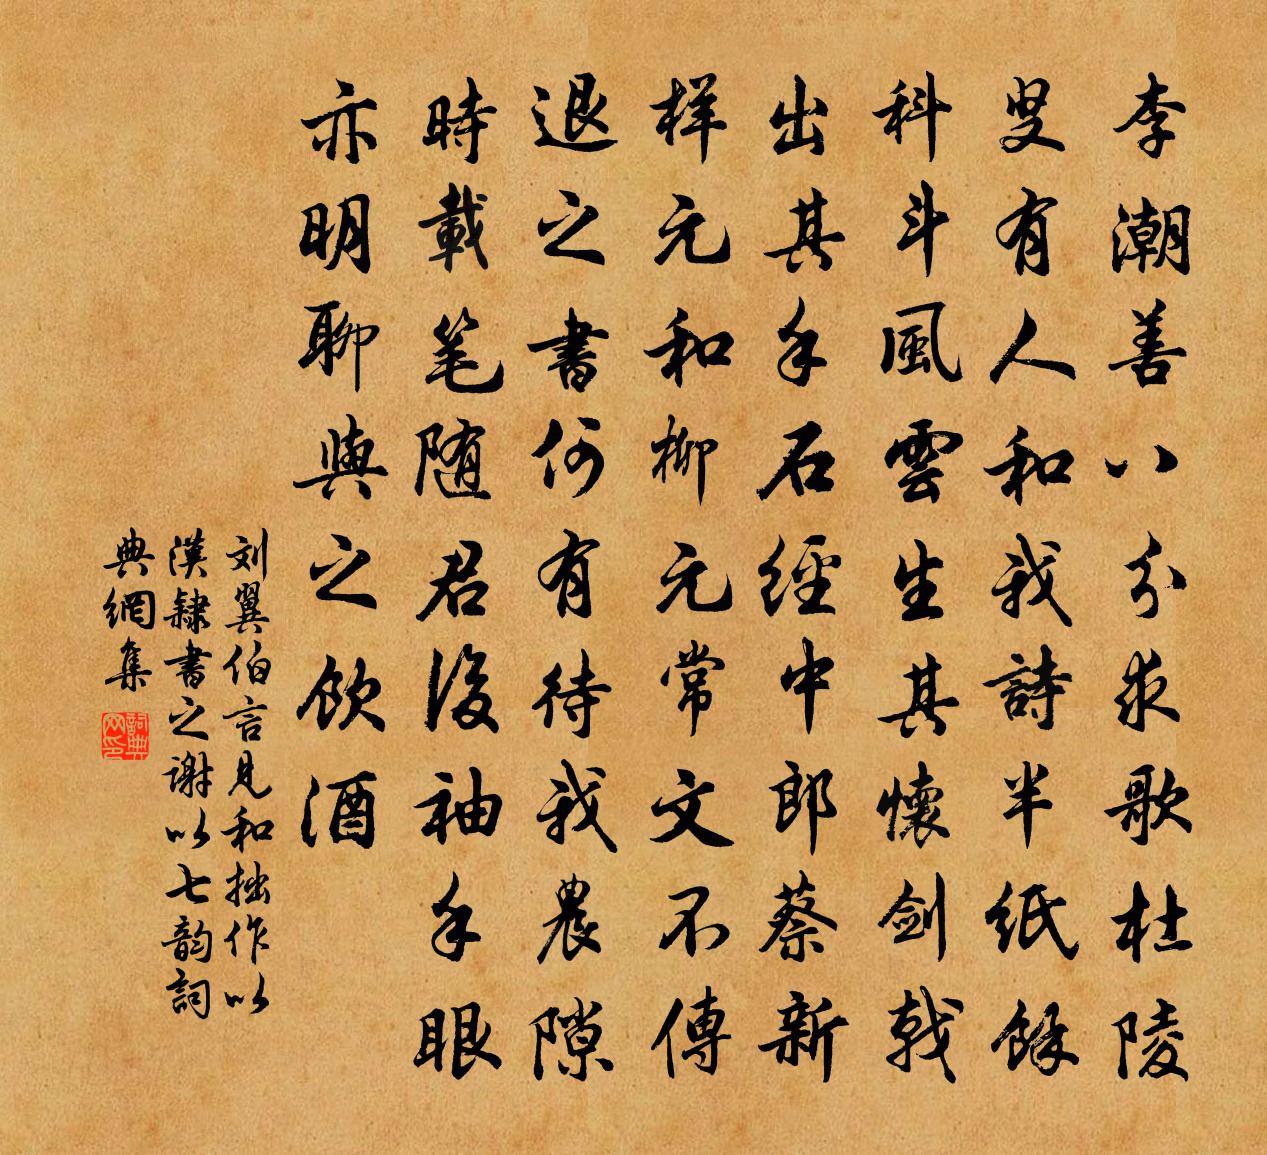 李潮善八分求歌杜陵
叟有人和我詩半紙餘
科斗風雲生其懷劍戟
出其手石經中郎蔡新
様元和柳元常文不傳
退之書何有待我農隙
時載笔随君後袖手眼
亦明聊與之飲酒
刘翼伯言見和拙作以
漢隷書之謝以七韵詞
典網集
詞典网印